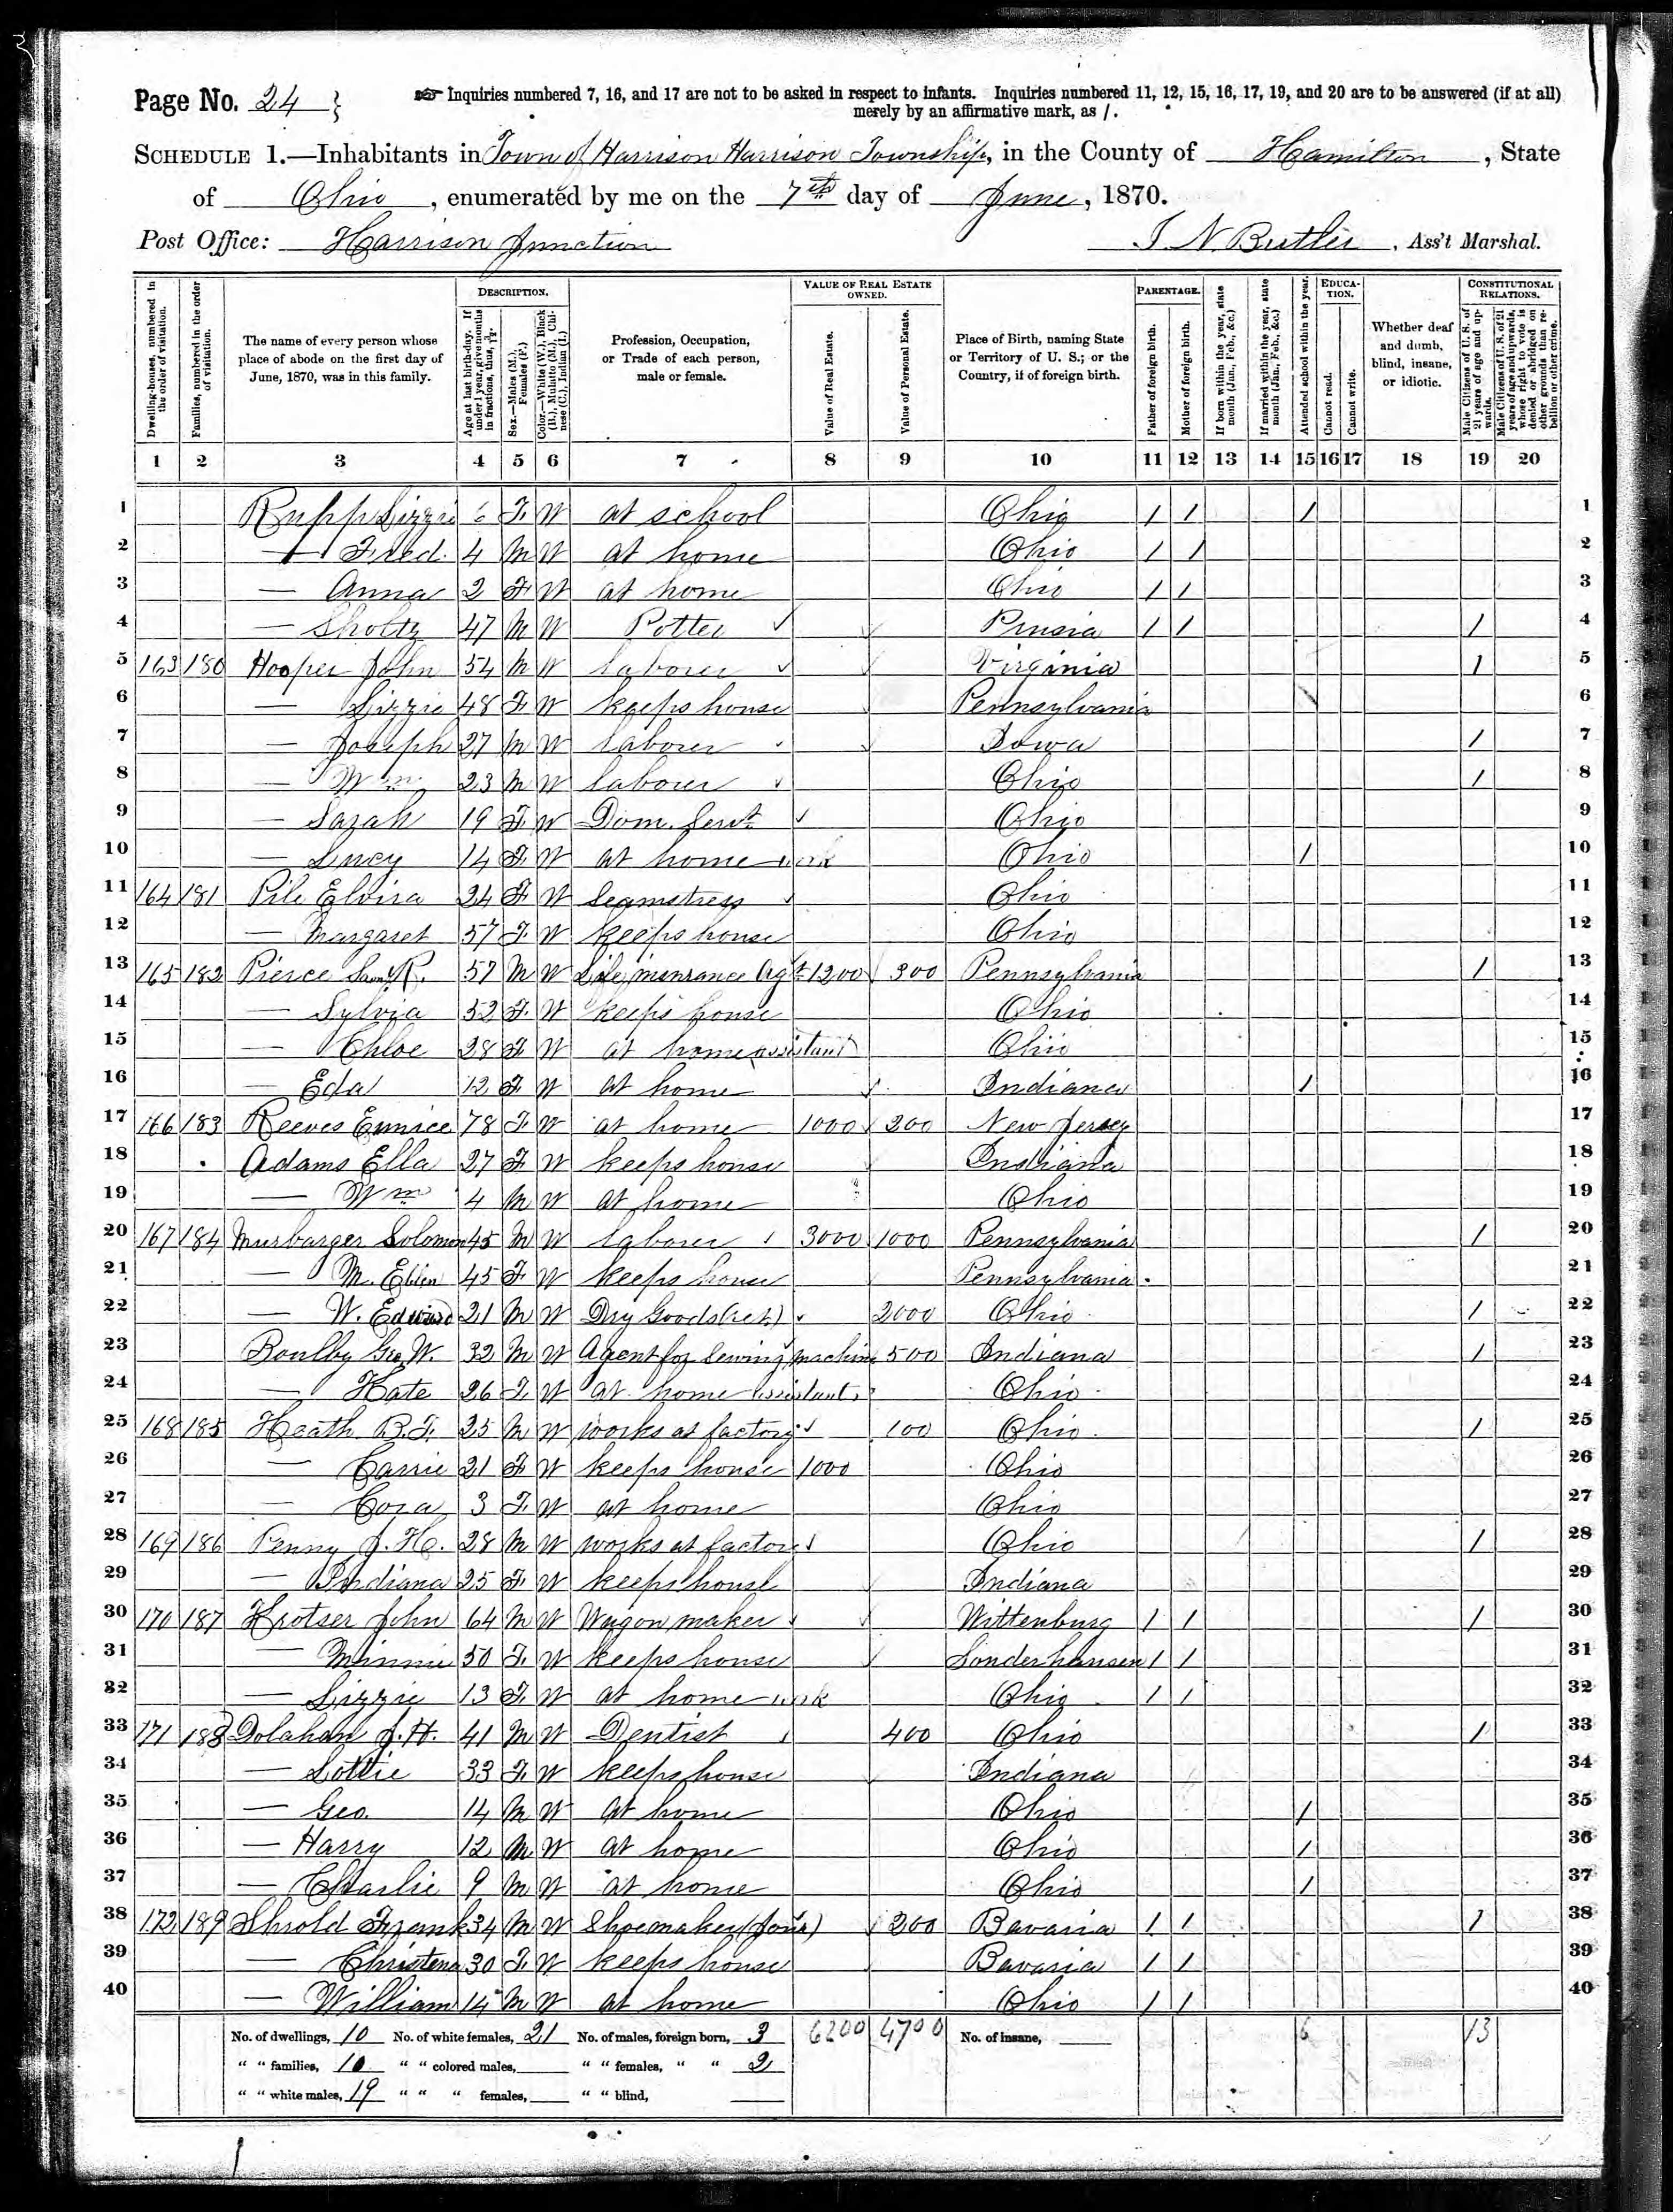 Page No. 24 }
☞ Inquiries numbered 7, 16, and 17 are not to be asked in respect to infants. Inquiries numbered 11, 12, 15, 16, 17, 19, and 20 are to be answered (if at all)
merely by an affirmative mark, as /.
SCHEDULE 1.—Inhabitants in Town of Harrison Harrison Township, in the County of Hamilton, State
of Ohio, enumerated by me on the 7th day of June, 1870.
Post Office: Harrison Junction
J N Butler, Ass't Marshal.
Dwelling-houses, numbered in the order of visitation.
Families, numbered in the order of visitation.
The name of every person whose place of abode on the first day of June, 1870, was in this family.
DESCRIPTION.
Age at last birth-day. If under 1 year, give months in fractions, thus, 3/12.
Sex.—Males (M.), Females (F.)
Color.—White (W.), Black (B.), Mulatto (M.), Chinese (C.), Indian (I.)
Profession, Occupation, or Trade of each person, male or female.
VALUE OF REAL ESTATE OWNED.
Value of Real Estate.
Value of Personal Estate.
Place of Birth, naming State or Territory of U. S.; or the Country, if of foreign birth.
PARENTAGE.
Father of foreign birth.
Mother of foreign birth.
If born within the year, state month (Jan., Feb., &c.)
If married within the year, state month (Jan., Feb., &c.)
Attended school within the year.
EDUCATION.
Cannot read.
Cannot write.
Whether deaf and dumb, blind, insane, or idiotic.
CONSTITUTIONAL RELATIONS.
Male Citizens of U. S. of 21 years of age and upwards.
Male Citizens of U. S. of 21 years of age and upwards, whose right to vote is denied or abridged on other grounds than rebellion or other crime.
1 2 3 4 5 6 7 8 9 10 11 12 13 14 15 16 17 18 19 20
1 Rupp Lizzie 6 F W at school Ohio / / / 1
2 — Fred 4 M W at home Ohio / / 2
3 — Anna 2 F W at home Ohio / / 3
4 — Sholtz 47 M W Potter Prusia / / / 4
5 163 180 Hooper John 54 M W laborer Virginia / 5
6 — Lizzie 48 F W keeps house Pennsylvania 6
7 — Joseph 27 M W laborer Iowa / 7
8 — Wm 23 M W labourer Ohio / 8
9 — Sarah 19 F W Dom. Servt Ohio 9
10 — Lucy 14 F W at home work Ohio / 10
11 164 181 Pile Elvira 24 F W Seamstress Ohio 11
12 — Margaret 57 F W keeps house Ohio 12
13 165 182 Pierce Saml R. 57 M W Life insurance Agt 1200 300 Pennsylvania / 13
14 — Sylvia 52 F W keeps house Ohio 14
15 — Chloe 28 F W at home assistant Ohio 15
16 — Eda 12 F W at home Indiana / 16
17 166 183 Reeves Eunice 78 F W at home 1000 200 New Jersey 17
18 Adams Ella 27 F W keeps house Indiana 18
19 — Wm 4 M W at home Ohio 19
20 167 184 Murbarger Solomon 45 M W laborer 3000 1000 Pennsylvania / 20
21 — M. Ellen 45 F W keeps house Pennsylvania 21
22 — W. Edward 21 M W Dry Goods (ret) 2000 Ohio / 22
23 Boulby Geo W. 32 M W Agent for Sewing Machine 500 Indiana / 23
24 — Kate 26 F W at home assistant Ohio 24
25 168 185 Heath B. F. 25 M W works at factory 100 Ohio / 25
26 — Carrie 21 F W keeps house 1000 Ohio 26
27 — Cora 3 F W at home Ohio 27
28 169 186 Penny J. H. 28 M W works at factory Ohio / 28
29 — Indiana 25 F W keeps house Indiana 29
30 170 187 Krotser John 64 M W Wagon maker Wittenburg / / / 30
31 — Minnie 50 F W keeps house Sonderhausen / / 31
32 — Lizzie 13 F W at home work Ohio / / 32
33 171 188 Dolahan J. H. 41 M W Dentist 400 Ohio / 33
34 — Lottie 33 F W keeps house Indiana 34
35 — Geo. 14 M W at home Ohio / 35
36 — Harry 12 M W at home Ohio / 36
37 — Charlie 9 M W at home Ohio / 37
38 172 189 Shrold Frank 34 M W Shoemaker (Jour) 200 Bavaria / / / 38
39 — Christena 30 F W keeps house Bavaria / / 39
40 — William 14 M W at home Ohio / / 40
No. of dwellings, 10 No. of white females, 21 No. of males, foreign born, 3 6200 4700 No. of insane, 6 13
" " families, 10 " " colored males, " " females, " " 2
" " white males, 19 " " " females, " " blind,